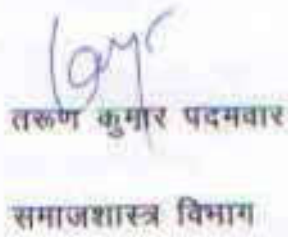 तरूण कुमार पदमवार
समाजशास्त्र विभाग